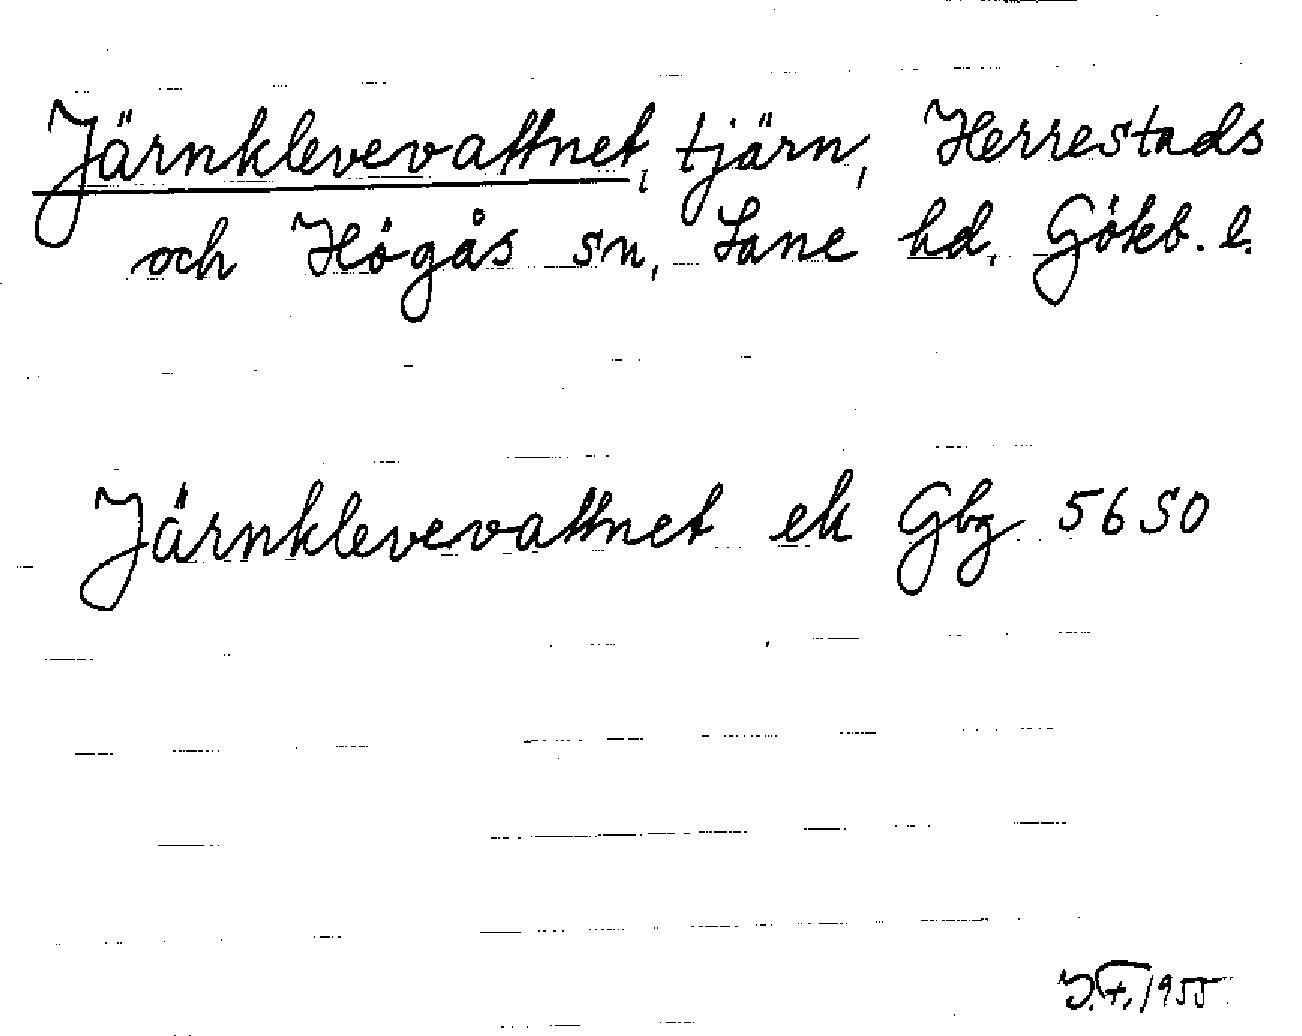 Järnklevevattnet, tjärn, Herrestads
och Högås sn, Lane hd. Gökb. l.
Järnklevevattnet ek Gbg 5650
J.F. 1955